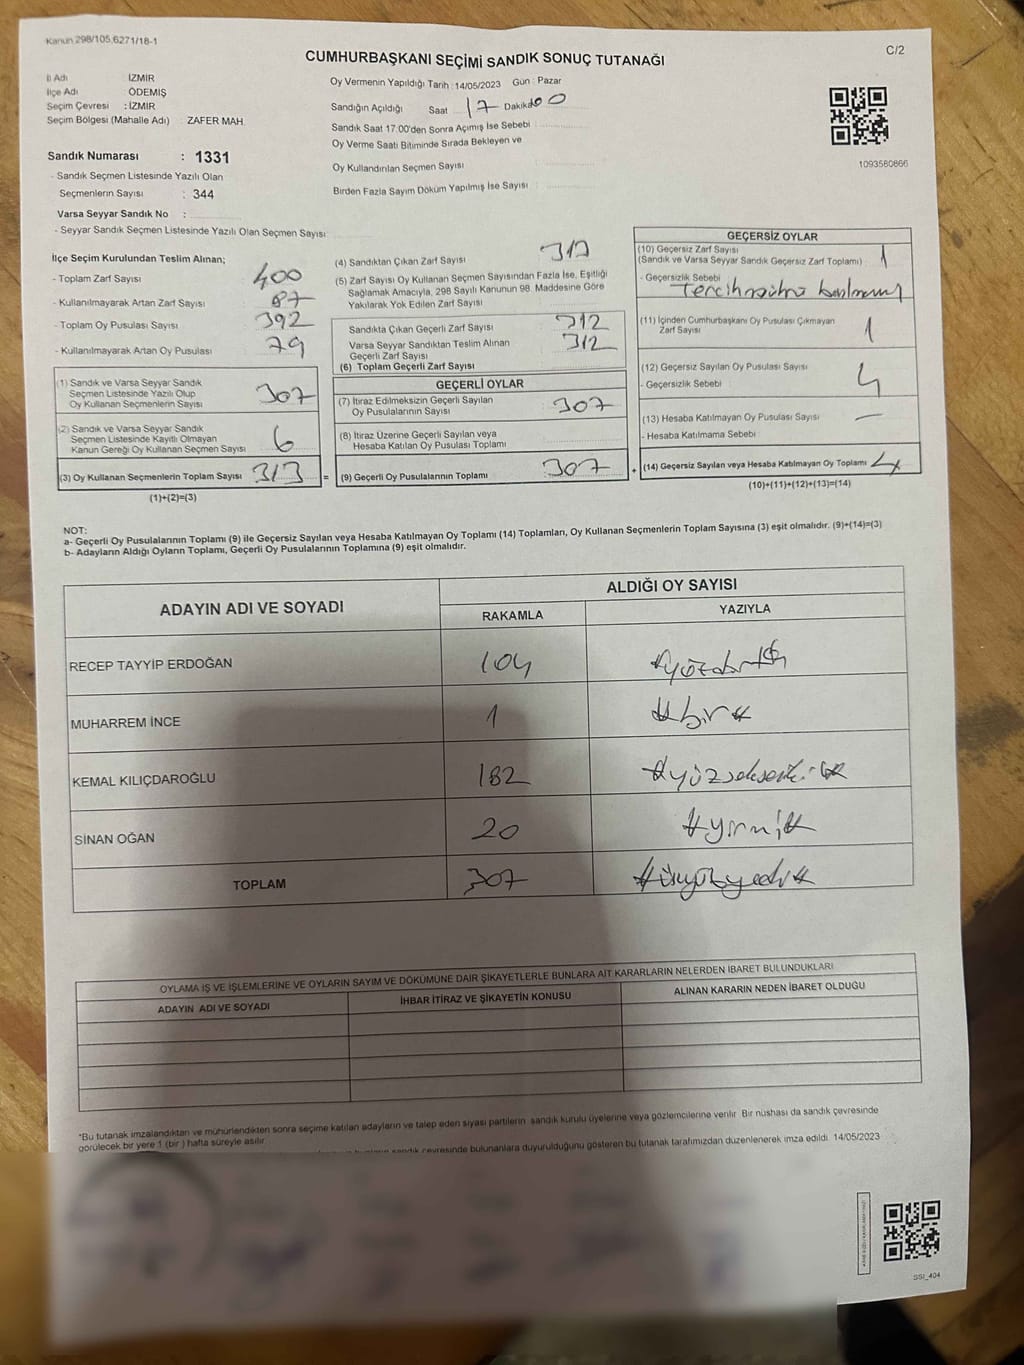 Kanun 298/105,6271/18-1
C/2
CUMHURBAŞKANI SEÇİMİ SANDIK SONUÇ TUTANAĞI
İl Adı İZMİR
İlçe Adı ÖDEMİŞ
Seçim Çevresi : İZMİR
Seçim Bölgesi (Mahalle Adı) ZAFER MAH.
Oy Vermenin Yapıldığı Tarih : 14/05/2023 Gün : Pazar
Sandığın Açıldığı Saat 17 Dakika 00
Sandık Saat 17:00'den Sonra Açımış İse Sebebi :
Oy Verme Saati Bitiminde Sırada Bekleyen ve
Oy Kullandırılan Seçmen Sayısı :
Birden Fazla Sayım Döküm Yapılmış İse Sayısı :
1093580866
Sandık Numarası : 1331
- Sandık Seçmen Listesinde Yazılı Olan
Seçmenlerin Sayısı : 344
Varsa Seyyar Sandık No :
- Seyyar Sandık Seçmen Listesinde Yazılı Olan Seçmen Sayısı:
İlçe Seçim Kurulundan Teslim Alınan;
- Toplam Zarf Sayısı 400
- Kullanılmayarak Artan Zarf Sayısı 87
- Toplam Oy Pusulası Sayısı 392
- Kullanılmayarak Artan Oy Pusulası 79
(1) Sandık ve Varsa Seyyar Sandık
Seçmen Listesinde Yazılı Olup
Oy Kullanan Seçmenlerin Sayısı 307
(2) Sandık ve Varsa Seyyar Sandık
Seçmen Listesinde Kayıtlı Olmayan
Kanun Gereği Oy Kullanan Seçmen Sayısı 6
(3) Oy Kullanan Seçmenlerin Toplam Sayısı 313 =
(1)+(2)=(3)
(4) Sandıktan Çıkan Zarf Sayısı
(5) Zarf Sayısı Oy Kullanan Seçmen Sayısından Fazla İse, Eşitliği
Sağlamak Amacıyla, 298 Sayılı Kanunun 98. Maddesine Göre
Yakılarak Yok Edilen Zarf Sayısı
Sandıkta Çıkan Geçerli Zarf Sayısı 312
Varsa Seyyar Sandıktan Teslim Alınan
Geçerli Zarf Sayısı 312
(6) Toplam Geçerli Zarf Sayısı
GEÇERLİ OYLAR
(7) İtiraz Edilmeksizin Geçerli Sayılan
Oy Pusulalarının Sayısı 307
(8) İtiraz Üzerine Geçerli Sayılan veya
Hesaba Katılan Oy Pusulası Toplamı
(9) Geçerli Oy Pusulalarının Toplamı 307 +
GEÇERSİZ OYLAR
(10) Geçersiz Zarf Sayısı 1
(Sandık ve Varsa Seyyar Sandık Geçersiz Zarf Toplamı)
- Geçersizlik Sebebi
Tercih mührü basılmamış
(11) İçinden Cumhurbaşkanı Oy Pusulası Çıkmayan
Zarf Sayısı 1
(12) Geçersiz Sayılan Oy Pusulası Sayısı 4
- Geçersizlik Sebebi
(13) Hesaba Katılmayan Oy Pusulası Sayısı —
- Hesaba Katılmama Sebebi
(14) Geçersiz Sayılan veya Hesaba Katılmayan Oy Toplamı 4
(10)+(11)+(12)+(13)=(14)
NOT:
a- Geçerli Oy Pusulalarının Toplamı (9) ile Geçersiz Sayılan veya Hesaba Katılmayan Oy Toplamı (14) Toplamları, Oy Kullanan Seçmenlerin Toplam Sayısına (3) eşit olmalıdır. (9)+(14)=(3)
b- Adayların Aldığı Oyların Toplamı, Geçerli Oy Pusulalarının Toplamına (9) eşit olmalıdır.
ADAYIN ADI VE SOYADI
ALDIĞI OY SAYISI
RAKAMLA YAZIYLA
RECEP TAYYİP ERDOĞAN 104 #yüzdört#
MUHARREM İNCE 1 #bir#
KEMAL KILIÇDAROĞLU 182 #yüzsekseniki#
SİNAN OĞAN 20 #yirmi#
TOPLAM 307 #üçyüzyedi#
OYLAMA İŞ VE İŞLEMLERİNE VE OYLARIN SAYIM VE DÖKÜMÜNE DAİR ŞİKAYETLERLE BUNLARA AİT KARARLARIN NELERDEN İBARET BULUNDUKLARI
ADAYIN ADI VE SOYADI İHBAR İTİRAZ VE ŞİKAYETİN KONUSU ALINAN KARARIN NEDEN İBARET OLDUĞU
*Bu tutanak imzalandıktan ve mühürlendikten sonra seçime katılan adayların ve talep eden siyasi partilerin sandık kurulu üyelerine veya gözlemcilerine verilir. Bir nüshası da sandık çevresinde
görülecek bir yere 1 (bir) hafta süreyle asılır.
sandık çevresinde bulunanlara duyurulduğunu gösteren bu tutanak tarafımızdan düzenlenerek imza edildi. 14/05/2023
SSI_404